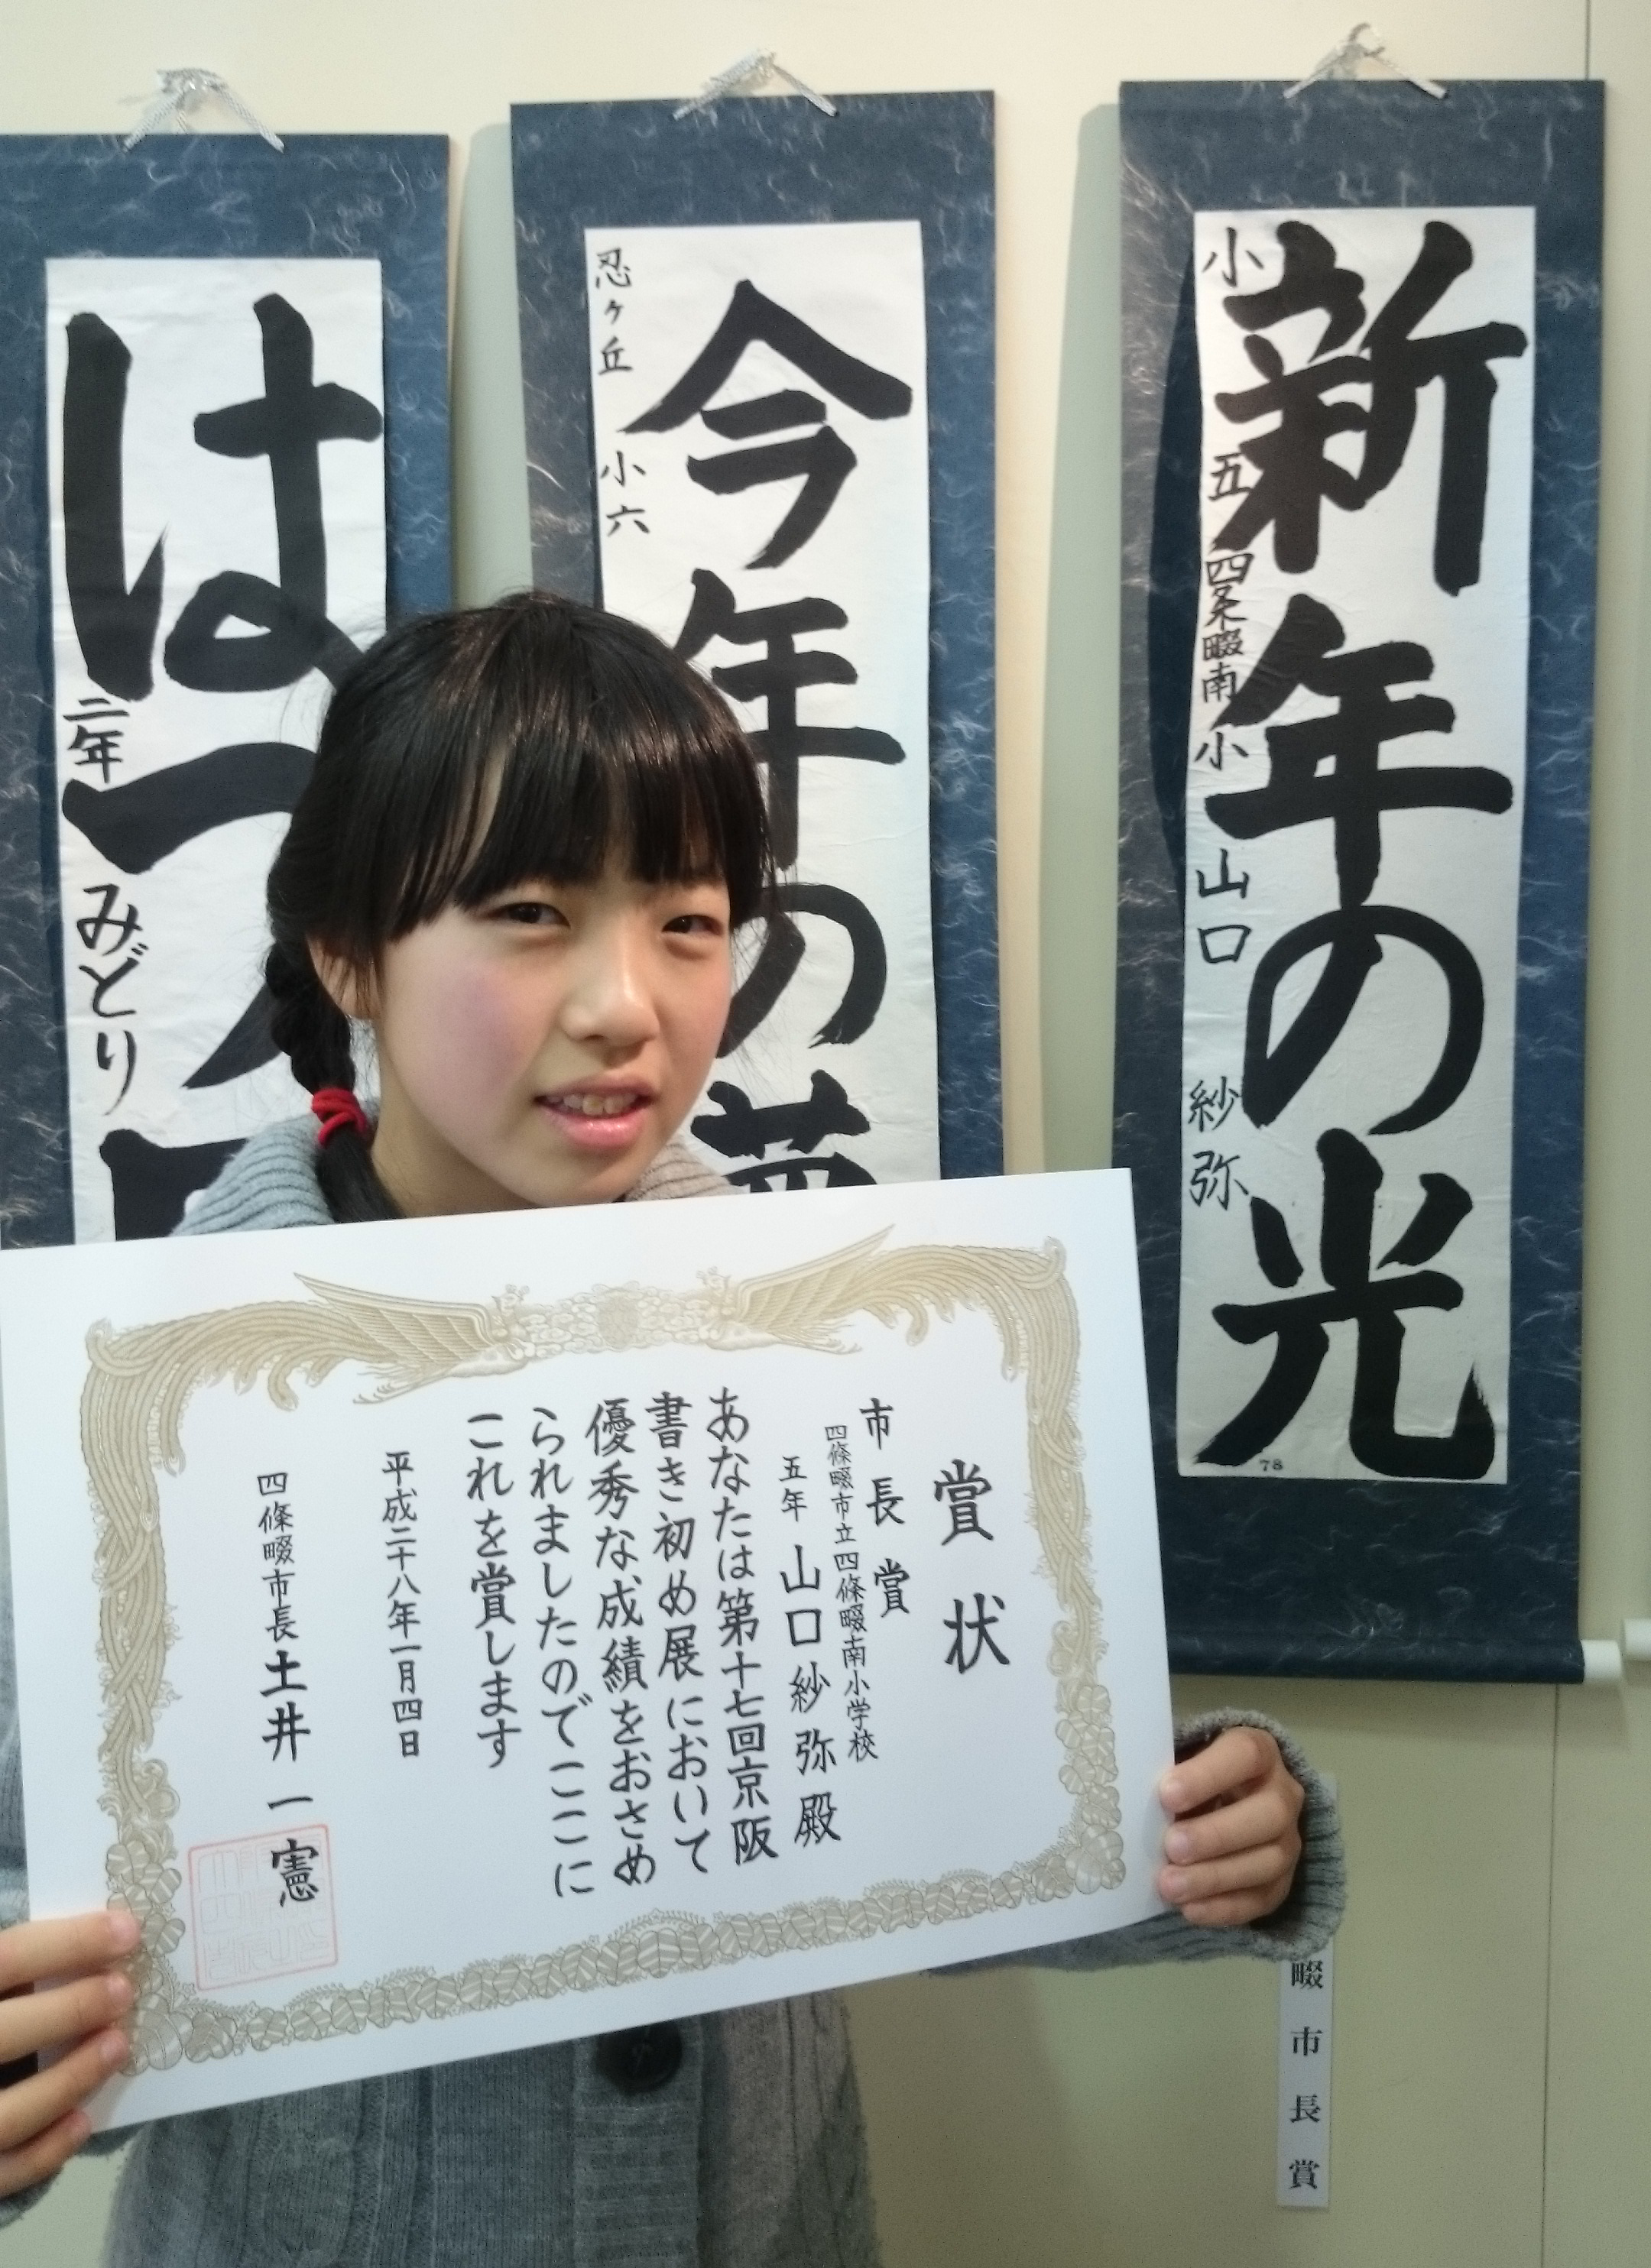 新年の光
小五
四条畷南小
山口
紗弥
78
今年の夢
忍ヶ丘
小六
はつ
二年
みどり
賞状
市長賞
四條畷市立四條畷南小学校
五年 山口紗弥殿
あなたは第十七回京阪
書き初め展において
優秀な成績をおさめ
られましたのでここに
これを賞します
平成二十八年一月四日
四條畷市長 土井一憲
畷市長賞